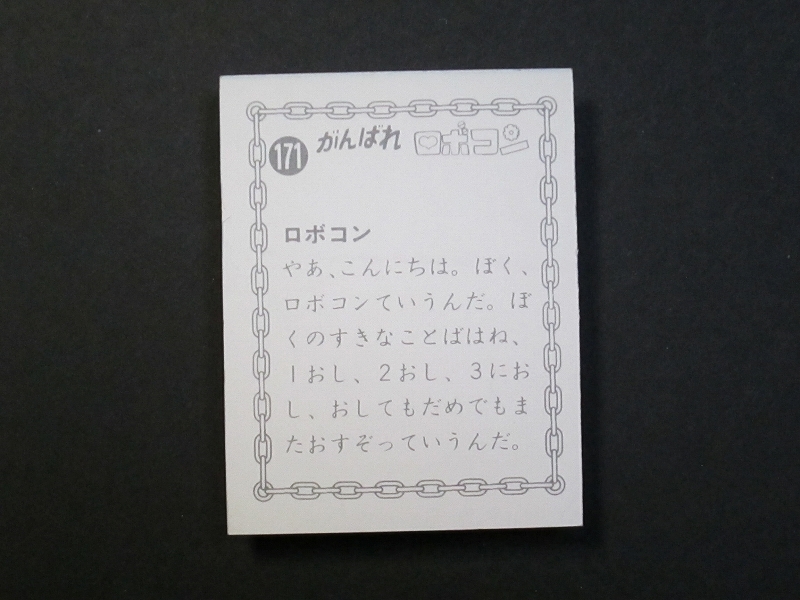 171 がんばれ ロボコン
ロボコン
やあ、こんにちは。ぼく、
ロボコンていうんだ。ぼ
くのすきなことばはね、
1おし、2おし、3にお
し、おしてもだめでもま
たおすぞっていうんだ。